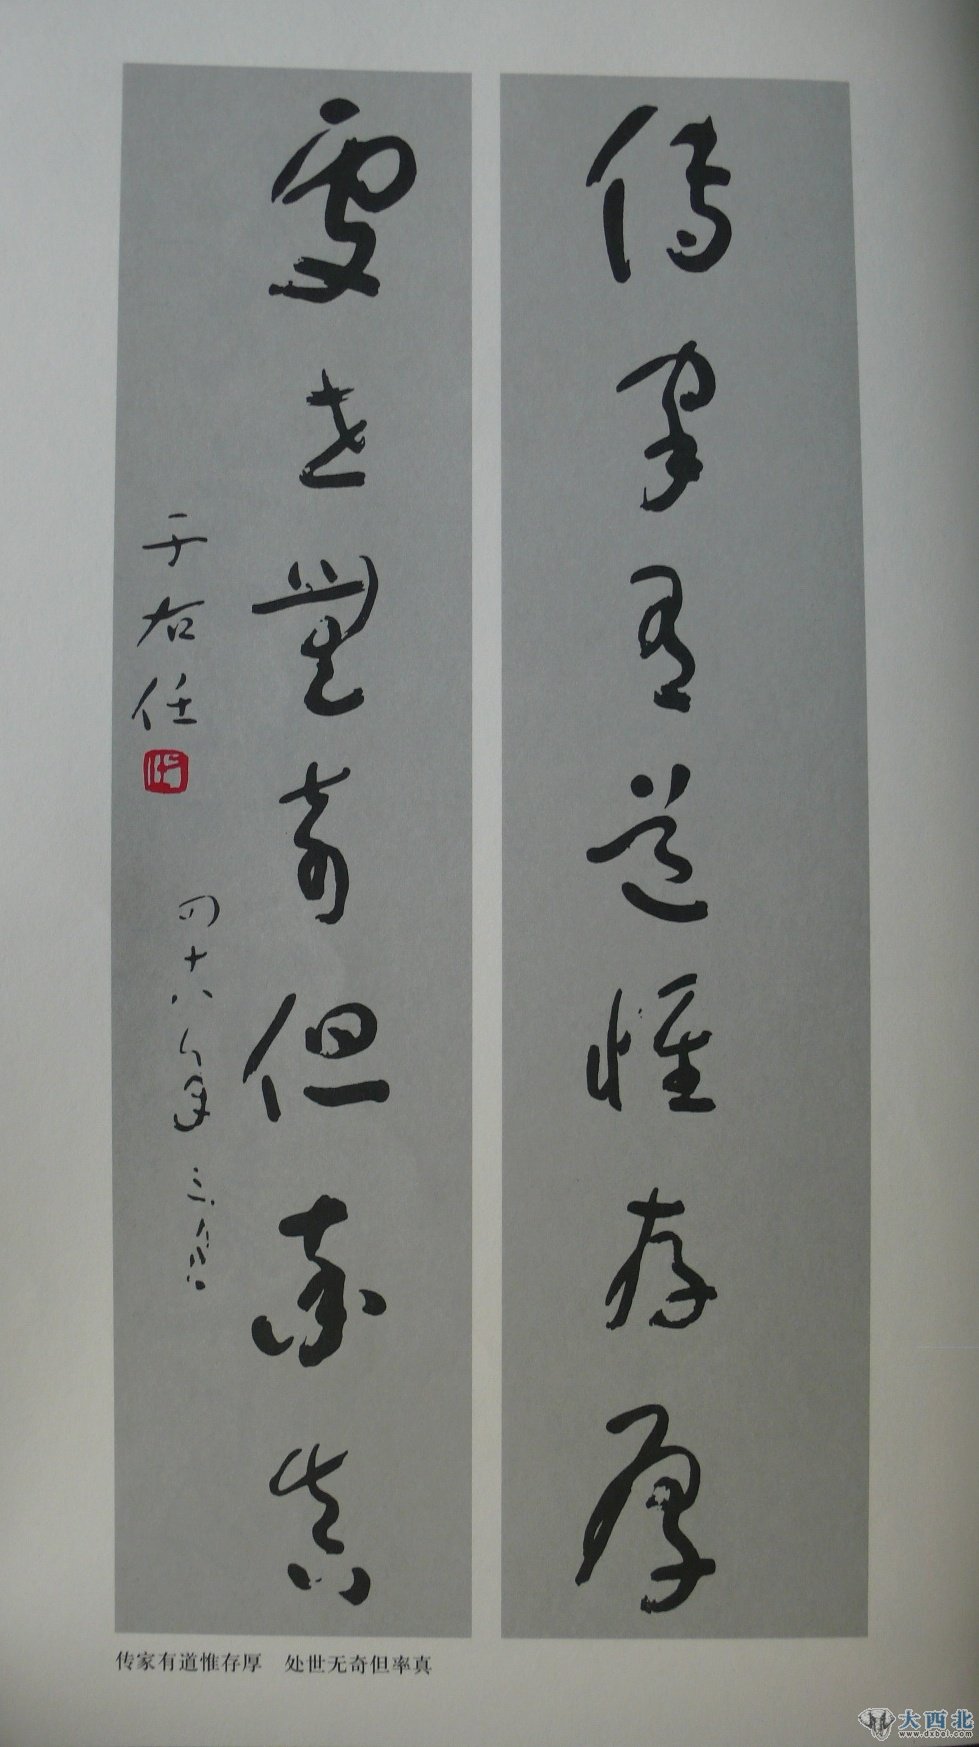 傳家有道惟存厚
處世無奇但率真
于右任
四十八年三月
传家有道惟存厚 处世无奇但率真
大西北
www.dxbei.com